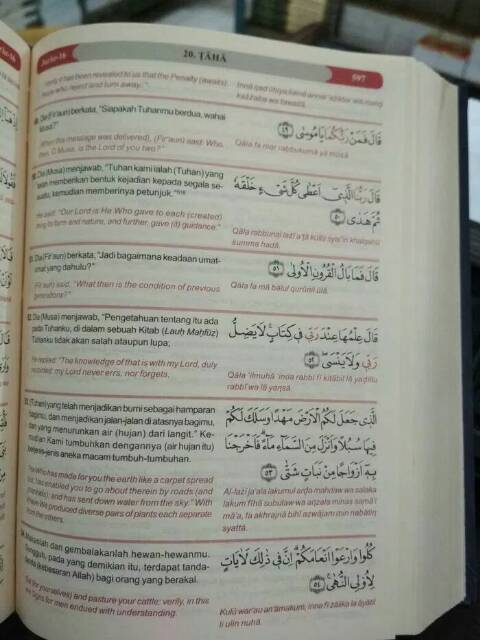 Juz ke-16
20. ṬĀHĀ
597
Verily, it had been revealed to us that the Penalty (awaits)
those who reject and turn away."
Innā qad ūḥiya ilainā annal-'ażāba 'alā mang
każżaba wa tawallā.
Dia (Fir'aun) berkata, "Siapakah Tuhanmu berdua, wahai
Musa?"
قَالَ فَمَنْ رَّبُّكُمَا يٰمُوْسٰى ۝٤٩
(When this message was delivered), (Fir'aun) said: Who,
then, O Musa, is the Lord of you two?"
Qāla fa mar rabbukumā yā mūsā.
Dia (Musa) menjawab, "Tuhan kami ialah (Tuhan) yang
telah memberikan bentuk kejadian kepada segala se-
suatu, kemudian memberinya petunjuk."
قَالَ رَبُّنَا الَّذِيْٓ اَعْطٰى كُلَّ شَيْءٍ خَلْقَهٗ
ثُمَّ هَدٰى ۝٥٠
He said: "Our Lord is He Who gave to each (created)
thing its form and nature, and further, gave (it) guidance."
Qāla rabbunal-lażī a'ṭā kulla syai'in khalqahū
ṡumma hadā.
Dia (Fir'aun) berkata, "Jadi bagaimana keadaan umat-
umat yang dahulu?"
قَالَ فَمَا بَالُ الْقُرُوْنِ الْاُوْلٰى ۝٥١
(Fir'aun) said: "What then is the condition of previous
generations?"
Qāla fa mā bālul qurūnil ūlā.
52. Dia (Musa) menjawab, "Pengetahuan tentang itu ada
pada Tuhanku, di dalam sebuah Kitab (Lauḥ Maḥfūẓ)
Tuhanku tidak akan salah ataupun lupa;
قَالَ عِلْمُهَا عِنْدَ رَبِّيْ فِيْ كِتٰبٍۚ لَا يَضِلُّ
رَبِّيْ وَلَا يَنْسَىۖ ۝٥٢
He replied: "The knowledge of that is with my Lord, duly
recorded; my Lord never errs, nor forgets,
Qāla 'ilmuhā 'inda rabbī fī kitābil lā yaḍillu
rabbī wa lā yansā.
53. (Tuhan) yang telah menjadikan bumi sebagai hamparan
bagimu, dan menjadikan jalan-jalan di atasnya bagimu,
dan yang menurunkan air (hujan) dari langit." Ke-
mudian Kami tumbuhkan dengannya (air hujan itu)
berjenis-jenis aneka macam tumbuh-tumbuhan.
الَّذِيْ جَعَلَ لَكُمُ الْاَرْضَ مَهْدًا وَّسَلَكَ لَكُمْ
فِيْهَا سُبُلًا وَّاَنْزَلَ مِنَ السَّمَاۤءِ مَاۤءًۗ فَاَخْرَجْنَا
بِهٖٓ اَزْوَاجًا مِّنْ نَّبَاتٍ شَتّٰى ۝٥٣
"He Who has made for you the earth like a carpet spread
out; has enabled you to go about therein by roads (and
channels); and has sent down water from the sky." With
it have We produced diverse pairs of plants each separate
from the others.
Al-lażī ja'ala lakumul arḍa mahdaw wa salaka
lakum fīhā subulaw wa anzala minas samā'i
mā'a, fa akhrajnā bihī azwājam min nabātin
syattā.
54. Makanlah dan gembalakanlah hewan-hewanmu.
Sungguh, pada yang demikian itu, terdapat tanda-
tanda (kebesaran Allah) bagi orang yang berakal.
كُلُوْا وَارْعَوْا اَنْعَامَكُمْ ۗ اِنَّ فِيْ ذٰلِكَ لَاٰيٰتٍ
لِّاُولِى النُّهٰى ۝٥٤
Eat (for yourselves) and pasture your cattle: verily, in this
are Signs for men endued with understanding.
Kulū war'au an'āmakum, inna fī żālika la āyātil
li ulin nuhā.